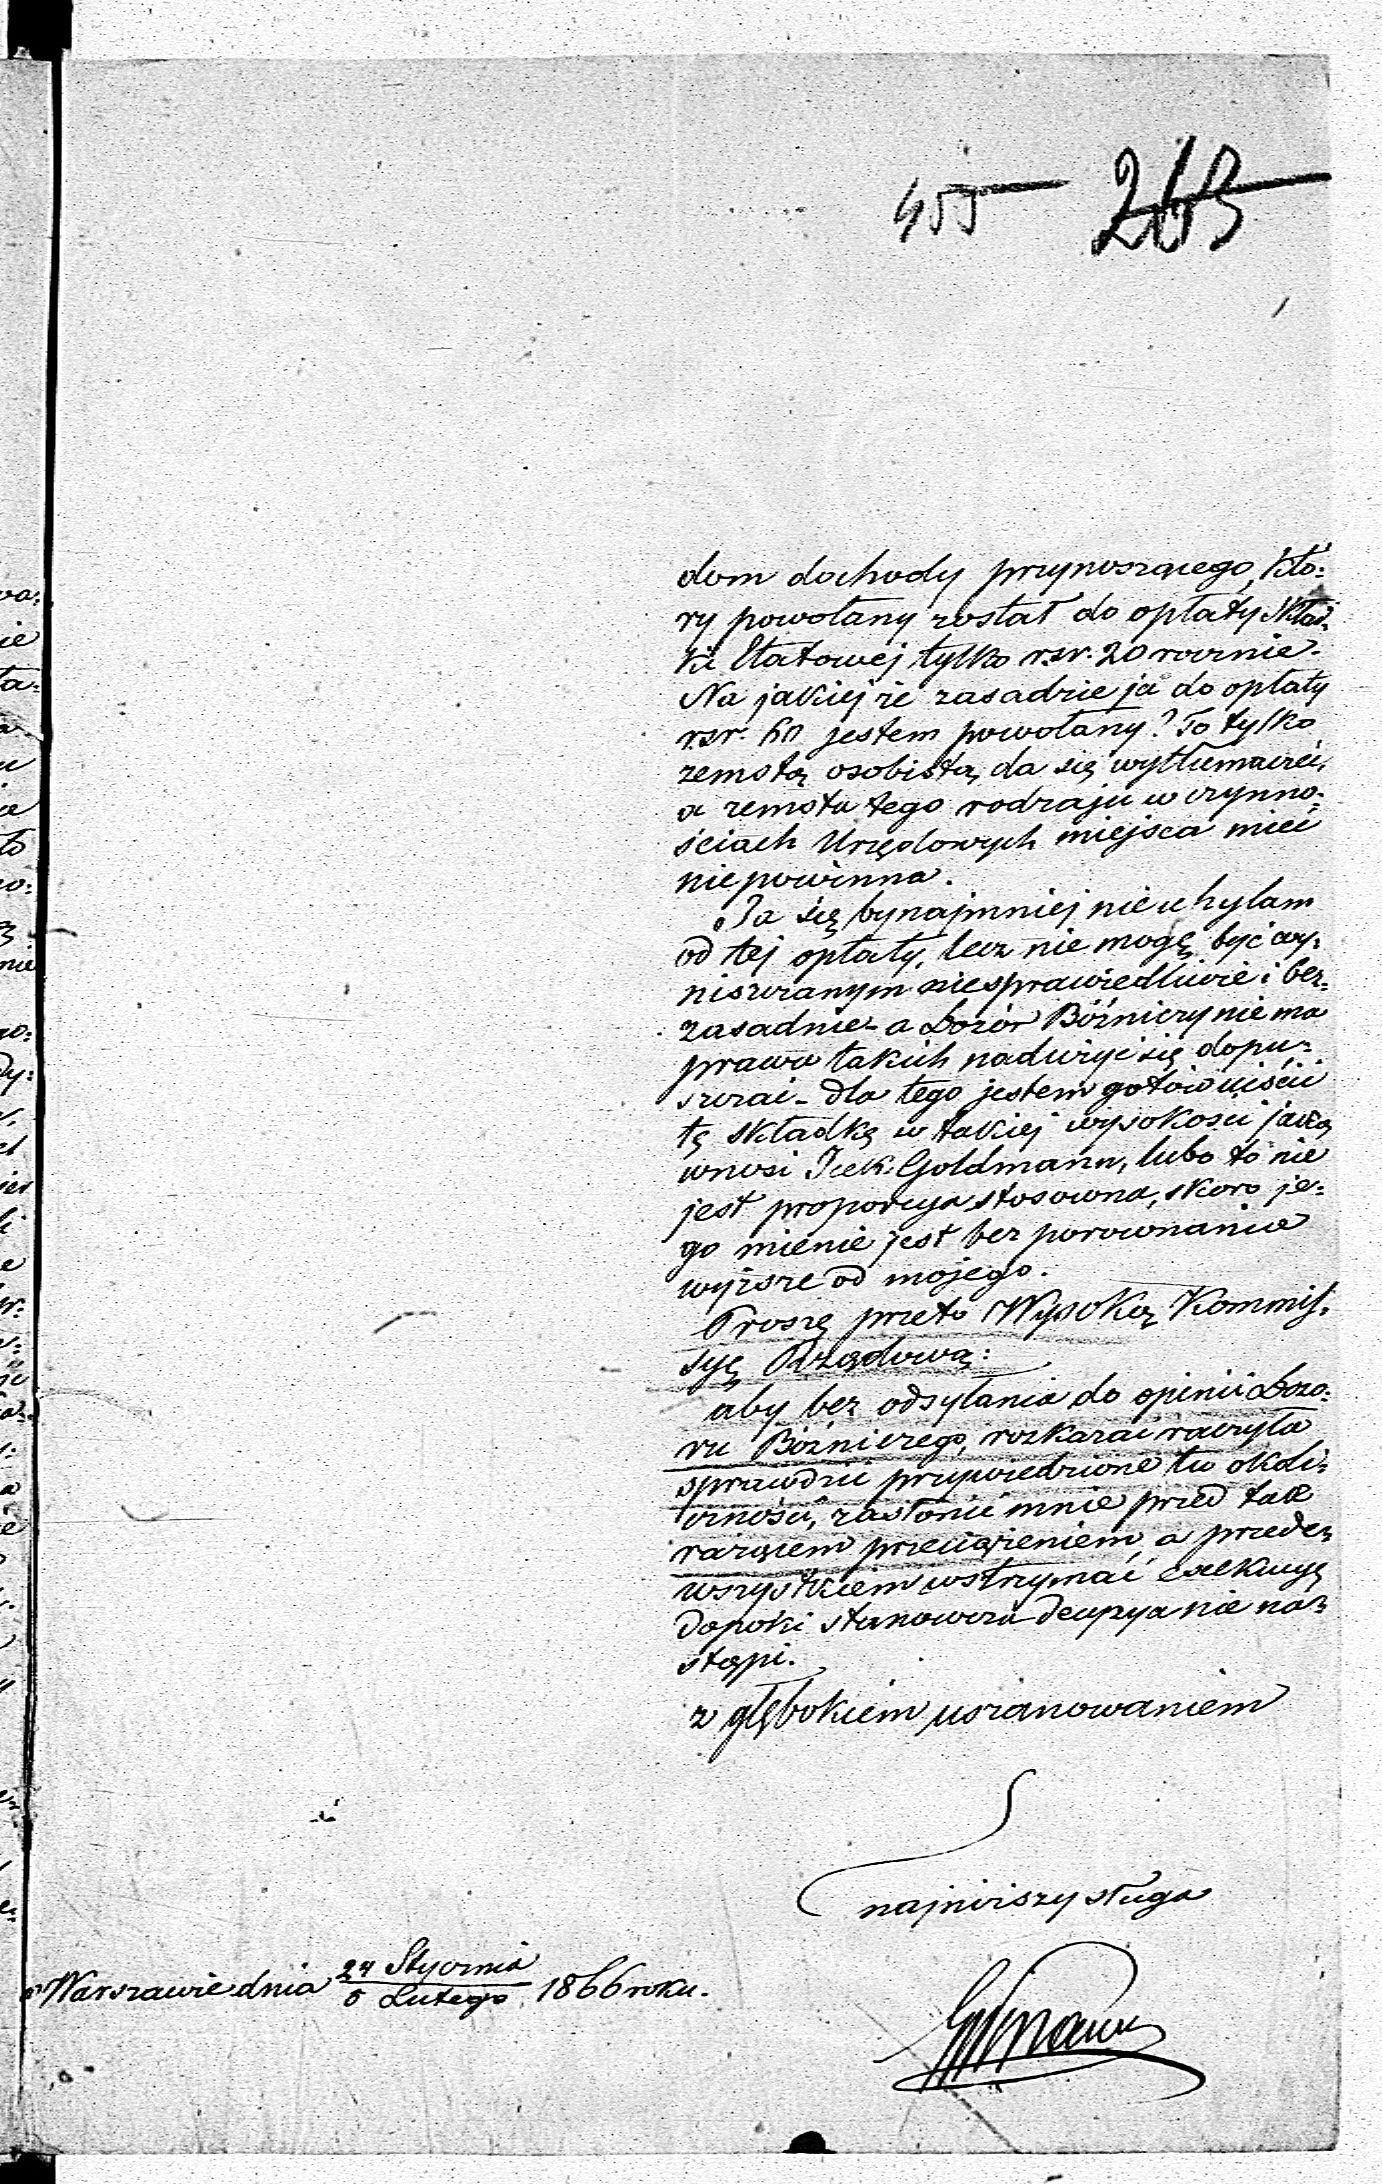 455 263
dom dochody przynoszącego, któ=
ry powołany został do opłaty Skład=
ki Etatowej tylko rsr. 20 rocznie.
Na jakiej że zasadzie ja do opłaty
rsr. 60 jestem powołany? To tylko
zemstą osobistą da się wytłumaczyć,
a zemsta tego rodzaju w czynno=
ściach Urzędowych miejsca mieć
nie powinna.
Ja się bynajmniej nie uchylam
od tej opłaty, lecz nie mogę być wy=
niszczanym niesprawiedliwie i bez=
zasadnie - a Dozór Bóźniczy nie ma
prawa takich nadużyć się dopu=
szczać - dla tego jestem gotów uiścić
tę składkę w takiej wysokości jaką
wnosi Icek Goldmann, lubo to nie
jest proporcya stosowna, skoro je=
go mienie jest bez porownania
wyższe od mojego.
Proszę przeto Wysoką Kommis=
syę Rządową:
aby bez odsyłania do opinii Dozo=
ru Bóźniczego, rozkazać raczyła
sprawdzić przywiedzione tu okoli=
czności, zasłonić mnie przed tak
rażącem przeciążeniem, a przede=
wszystkiem wstrzymać exekucyę
dopoki stanowcza decyzya nie na=
stąpi.
z głębokiem uszanowaniem
najniższy sługa
w Warszawie dnia 24 Stycznia / 5 Lutego 1866 roku.